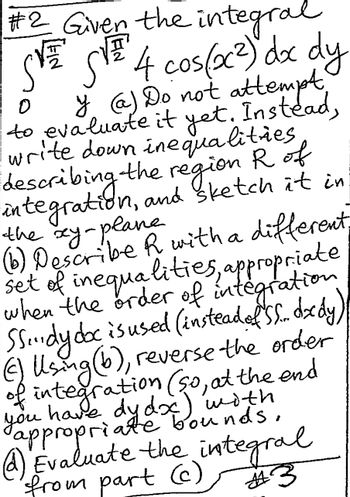 #2 Given the integral
∫₀^√(π/2) ∫_y^√(π/2) 4 cos(x²) dx dy
(a) Do not attempt
to evaluate it yet. Instead,
write down inequalities
describing the region R of
integration, and sketch it in
the xy-plane
(b) Describe R with a different
set of inequalities, appropriate
when the order of integration
∫∫...dy dx is used (instead of ∫∫... dx dy)
(c) Using (b), reverse the order
of integration (so, at the end
you have dy dx) with
appropriate bounds.
(d) Evaluate the integral
from part (c) #3